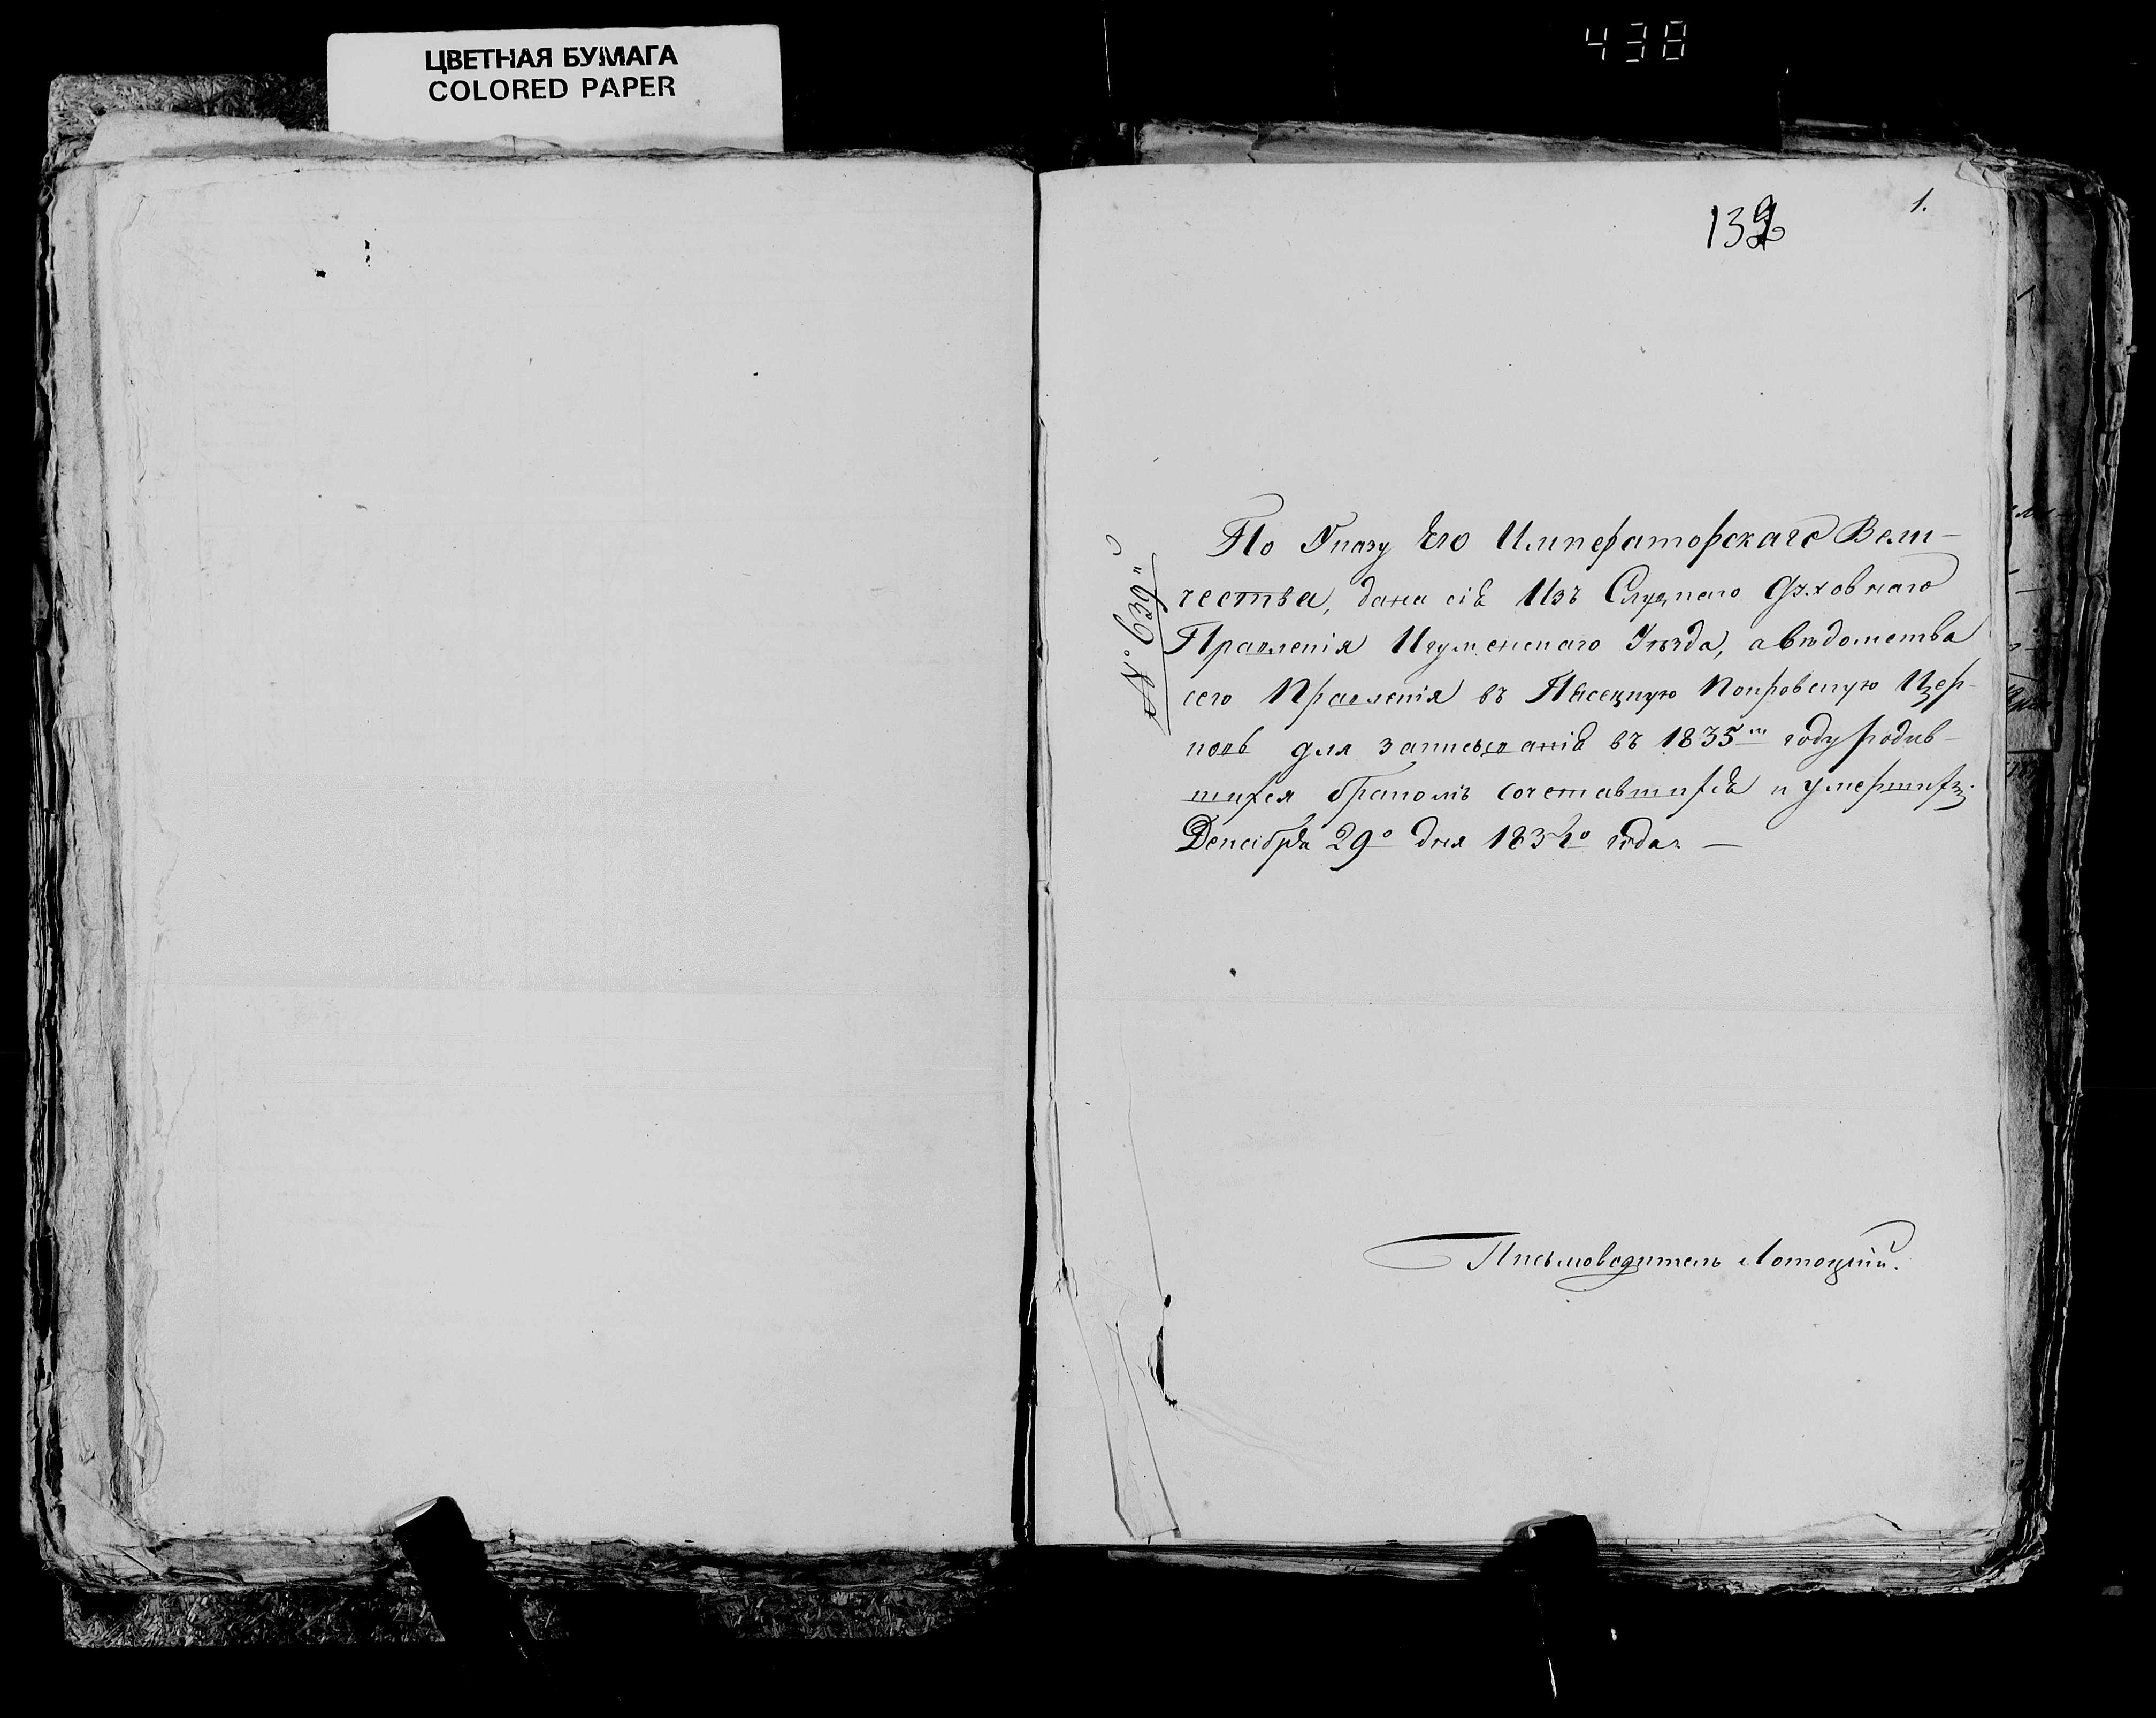 ЦВЕТНАЯ БУМАГА
COLORED PAPER
438
139
1.
№ 639"
По Указу Его Императорскаго Вели-
чества, дана сія Изъ Слуцкаго Духовнаго
Правленія Игуменскаго Уѣзда, а вѣдомства
сего Правленія въ Пѣсецкую Покровскую Цер-
ковь для записыванія въ 1835м году родив-
шихся бракомъ сочетавшихся и умершихъ
Декабря 29о дня 1834о года. —
Письмоводитель Лотоцкій.